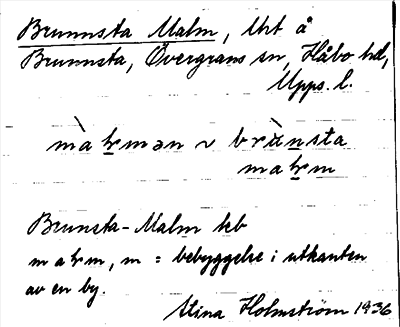 Brunnsta Malm, Urt å
Brunnsta, Övergrans sn, Håbo hd,
Upps. l.
màh̲rmən ~ brùn̲sta
mah̲rm
Brunsta-Malm beb
mahrm, m = bebyggelse i utkanten
av en by.
Stina Holmström 1936